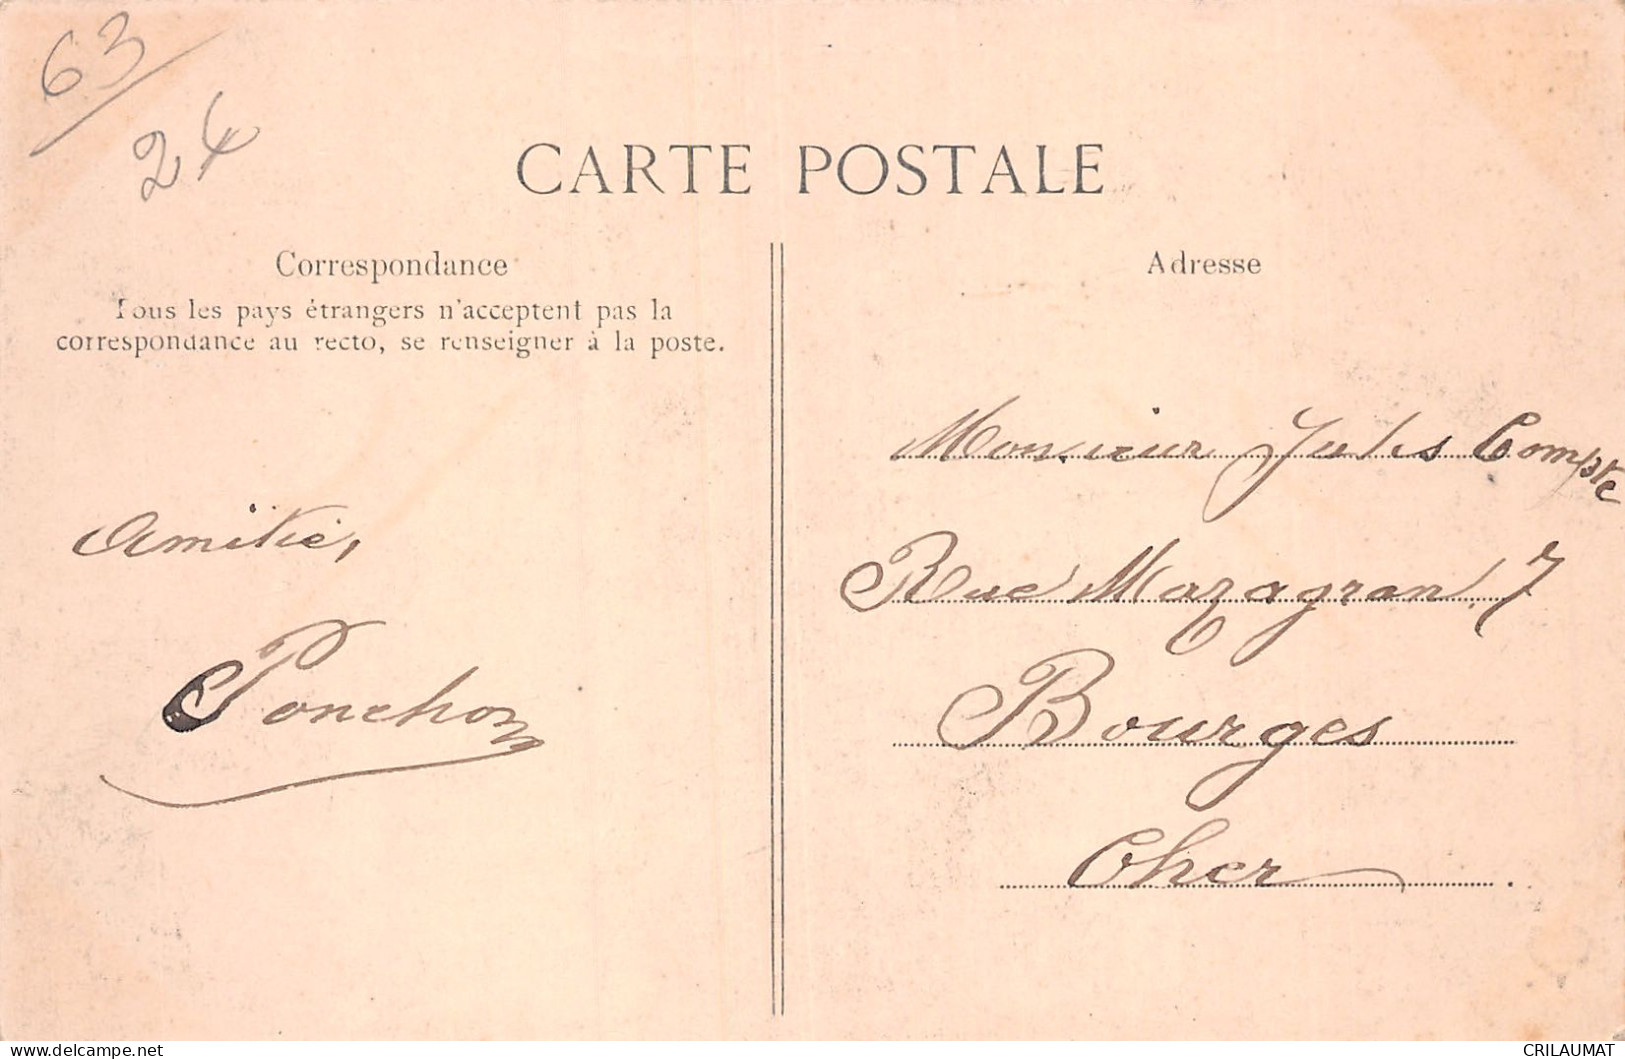 63
24
CARTE POSTALE
Correspondance
Tous les pays étrangers n'acceptent pas la
correspondance au recto, se renseigner à la poste.
Amitié,
Ponchon
Adresse
Monsieur Jules Compte
Rue Mazagran, 7
Bourges
Cher
delcampe.net
CRILAUMAT